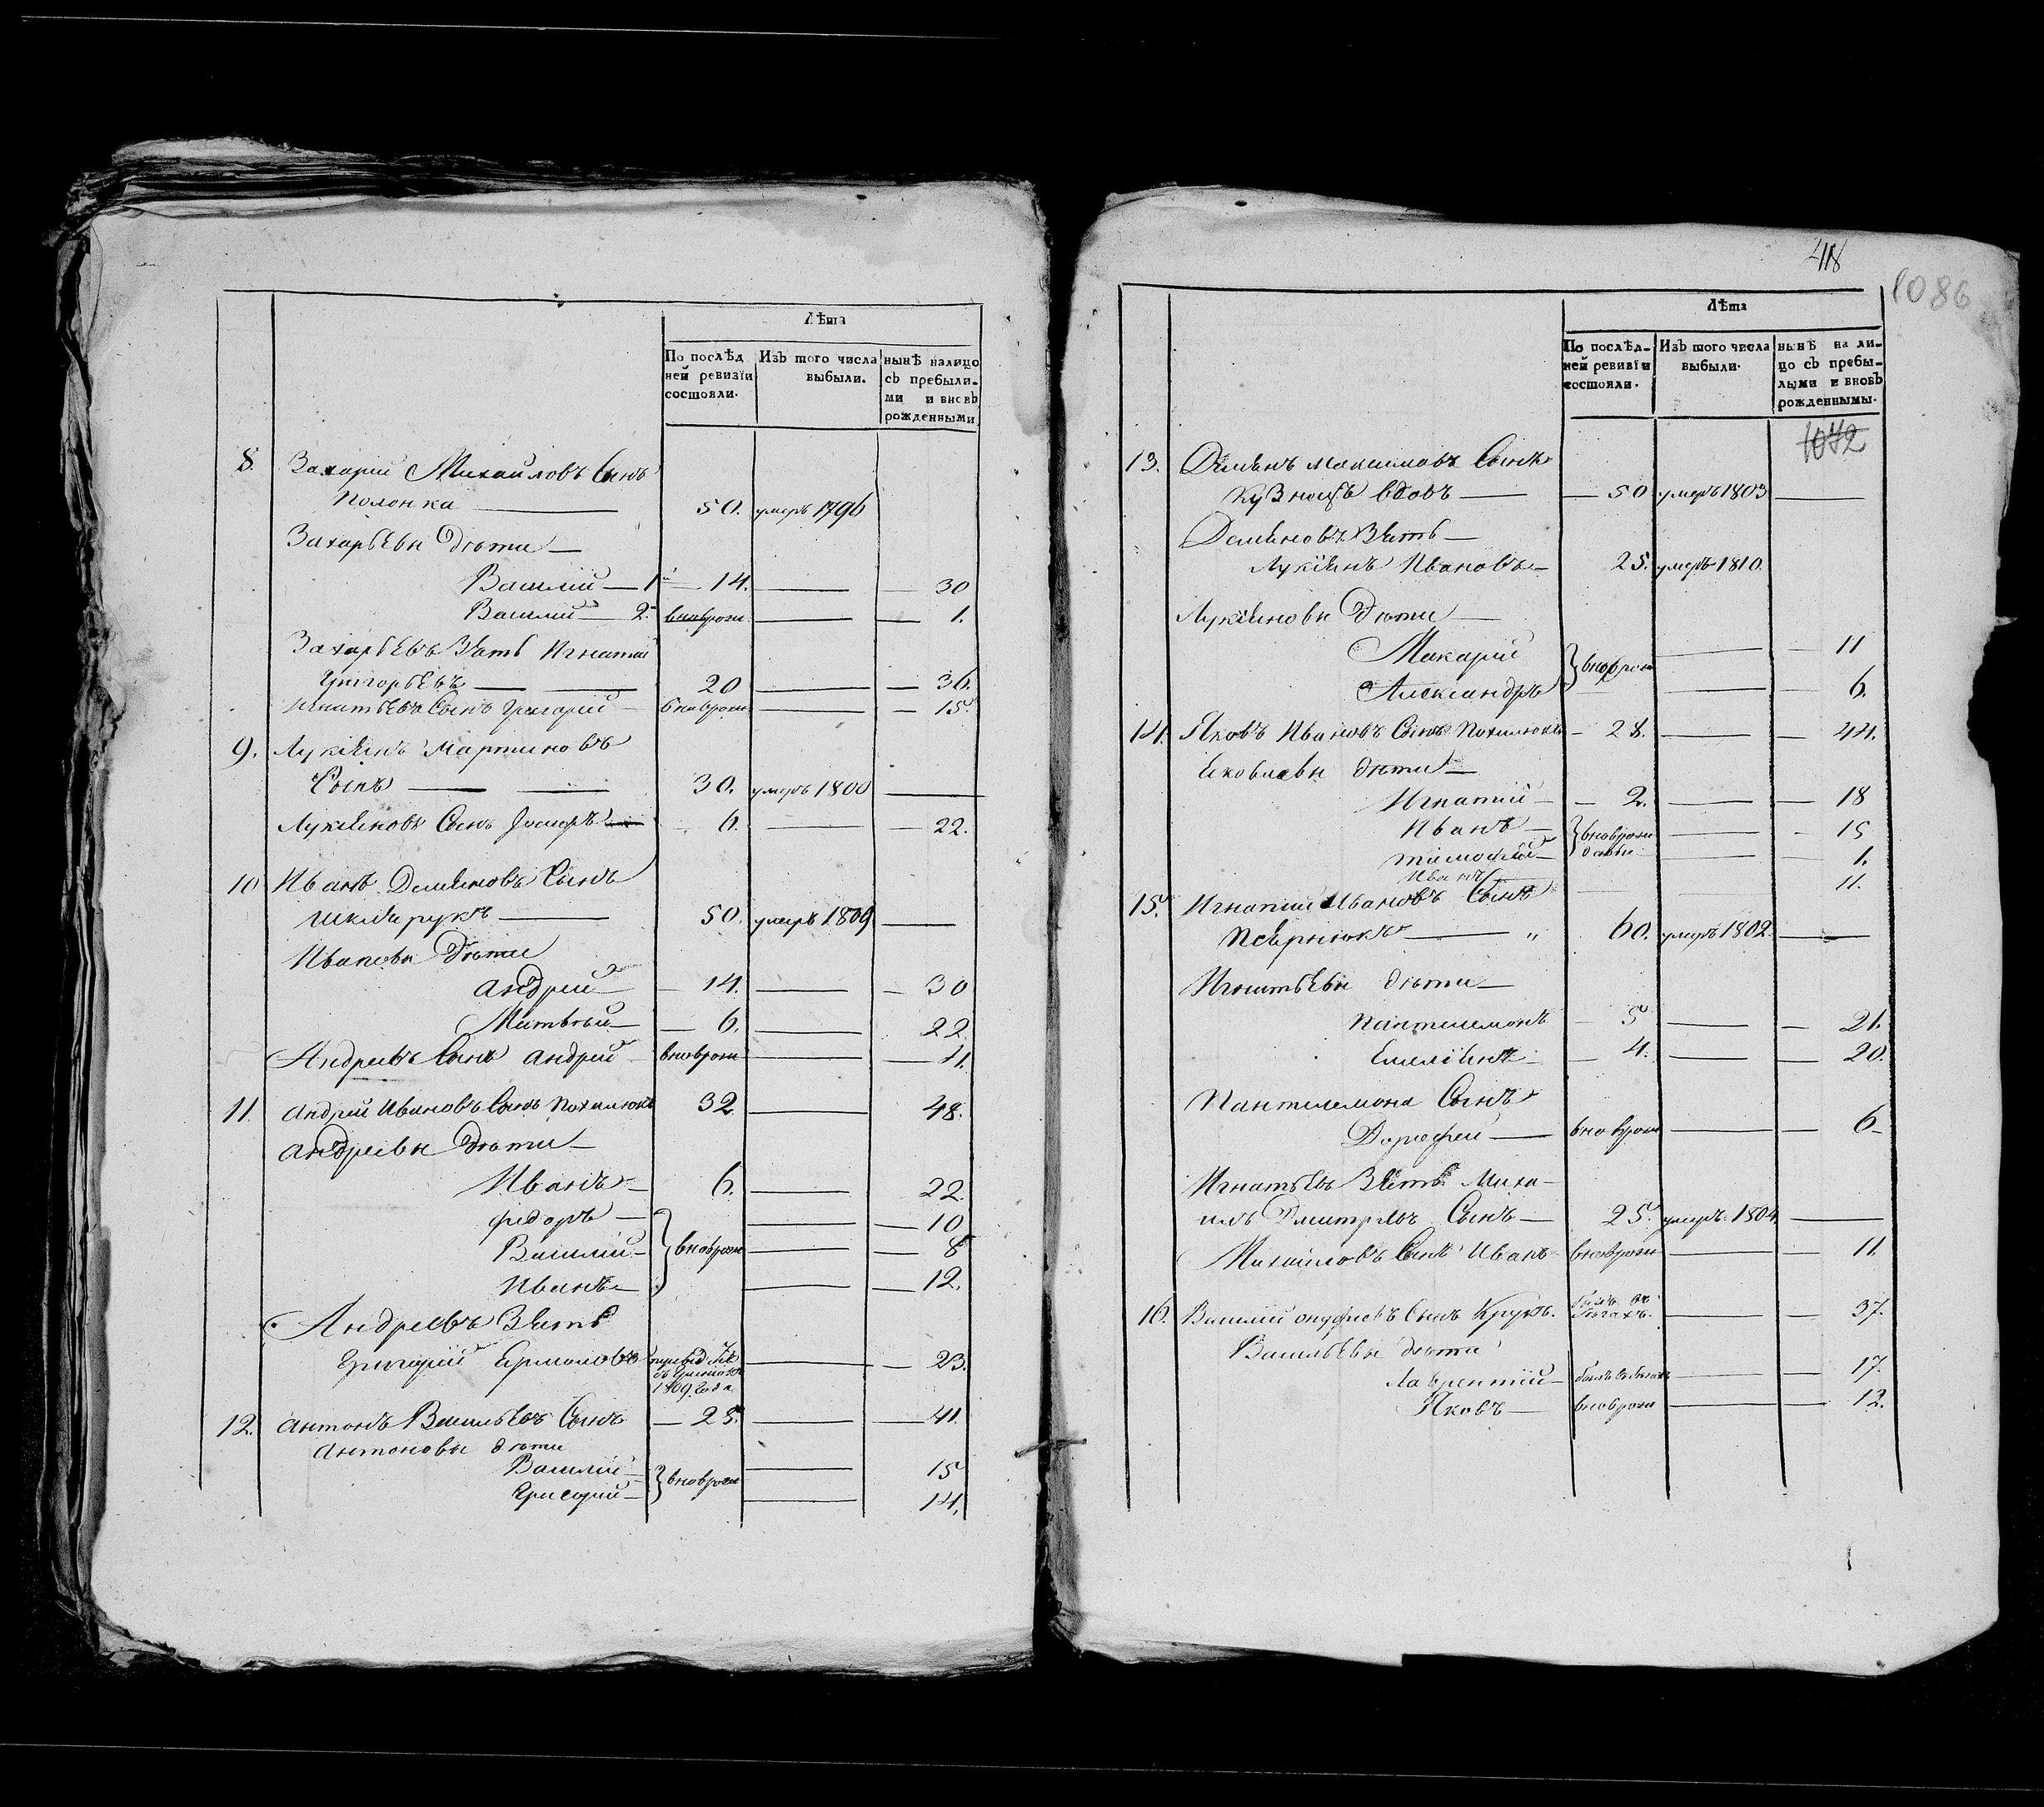 Лѣта
По послѣд
ней ревизїи
состояли.
Изъ того числа
выбыли.
нынѣ налицо
съ пребыли-
ми и вновь
рожденными
8. Захарий Михайловъ Сынъ
Полонка 50. умеръ 1796
Захарьевы дѣти
Василий 1й 14. 30
Василий 2. вноврожд 1.
Захарьевъ Зять Игнатий
Григорьевъ 20 36.
Игнатьева Сынъ Григорий вноврожд 15.
9. Лукіянъ Мартиновъ
Сынъ 30. умеръ 1800
Лукіяновъ Сынъ 6. 22.
10 Иванъ Деміяновъ Сынъ
Шклярукъ 50. умеръ 1809
Ивановы дѣти
Андрий 14. 30
Матвѣй 6. 22
Андреевъ Сынъ Андрий вноврожд 11.
11. Андрей Ивановъ Сынъ Похилюкъ 32 48.
Андреевы дѣти
Иванъ 6. 22.
Федоръ 10
Василий вноврожд 8
Иванъ 12.
Андреевъ Зять
Григорий Ермоловъ 23.
1809 Года
12. Антонъ Васильевъ Сынъ 25. 41.
Антоновы дѣти
Василий 15
вноврожд
Григорий 14.
418
1086
Лѣта
По послѣд-
ней ревизїи
состояли.
Изъ того числа
выбыли.
нынѣ на ли-
цо съ пребы-
лыми и вновь
рожденными.
1072
13. Деміянъ Максимовъ Сынъ
Кузнецъ вдовъ 50 умеръ 1803
Деміяновъ Зять
Лукіянъ Ивановъ 25. умеръ 1810.
Лукіяновы дѣти
Макарий 11
вноврож
Александръ 6.
14. Яковъ Ивановъ Сынъ Похилюкъ 28. 44.
Яковлевы дѣти
Игнатий 2. 18
Иванъ вноврожд 15
Тимофей 1.
Иванъ 11.
15. Игнатий Ивановъ Сынъ
60. умеръ 1802.
Игнатьевы дѣти
Пантилемонъ 5 21.
Емеліянъ 4. 20.
Пантилемона Сынъ
Дорофей вноврожд 6
Игнатьевъ Зять Миха-
илъ Дмитріевъ Сынъ 25. умеръ 1804
Михайловъ Сынъ Иванъ вноврожд 11.
16. Василий Онуфріевъ Сынъ Крукъ. былъ въ 37.
бѣгахъ.
Васильевы дѣти
Лаврентий былъ въ бѣгахъ 17.
Яковъ вноврожд 12.